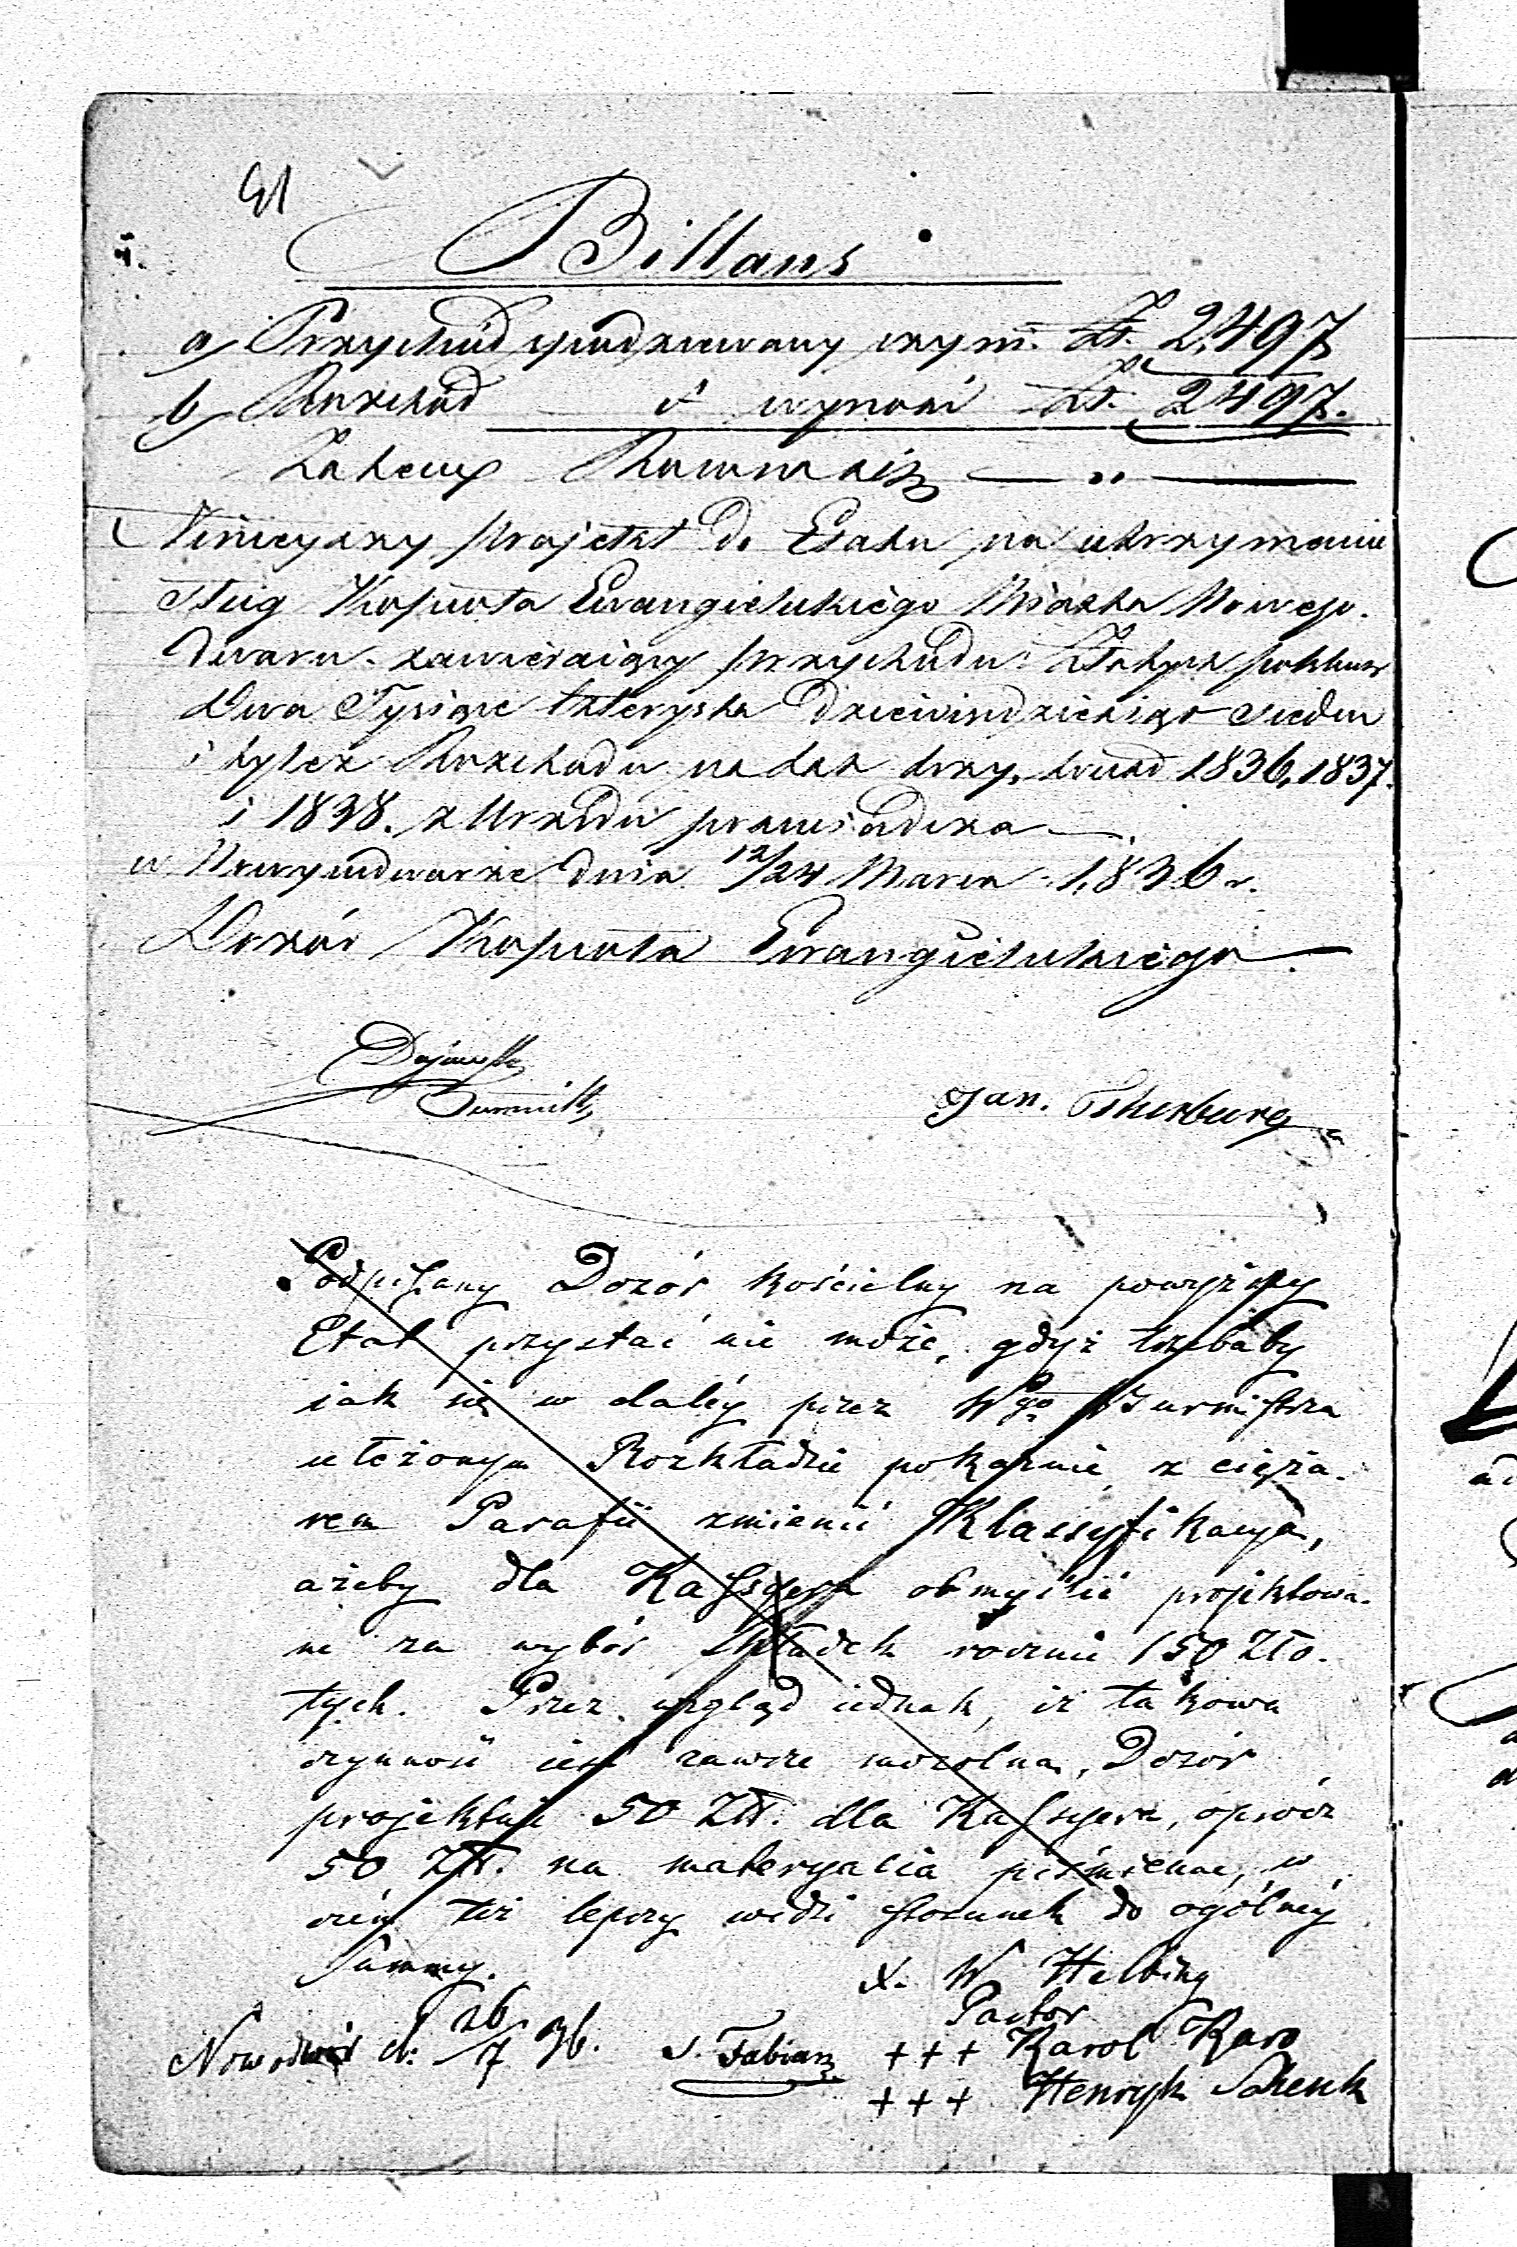 Billans
a) Przychód spodziewany wyn: Zł. 2,497
b) Rozchód i wynosi Zł. 2497.
Zatem Równa się — „ —
Niniejszy projekt do Etatu na utrzymanie
sług Kościoła Ewangielickiego Miasta Nowego-
dworu zawieraiący przychodu Złotych polskich
Dwa Tysiące Czterysta dziewiędziesiąt siedm
i tyleż Rozchodu na lat trzy, to iest 1836, 1837.
i 1838. z Urzędu
w Nowymdworze dnia 12/24 Marca 1836 r.
Dozór Kościoła Ewangielickiego
Burmistrz
Jan.
Podpisany Dozór kościelny na powyższy
Etat przystać nie może, gdyż trzebaby
iak się w daléy przez Wgo Burmistrza
ułożonym Rozkładzie pokaznie, z cięża-
rem Parafii zmienić Klassyfikacyą,
ażeby dla Kassyera obmyślić projektowa-
ne za wybór składek rocznie 150 Zło-
tych. Przez wzgląd iednak, iż takowa
czynność iest zawsze mozolna, Dozór
projektuie 50 Złt. dla Kassyera, oprócz
50 Złt. na materyalia piśmienne, w
czém też lepszy widzi stosunek do ogólnéy
Summy.
X. W Helbing
Pastor
Nowodwór d. 26/7 36. J. Fabian +++ Karol Karo
+++ Henryk Schenk